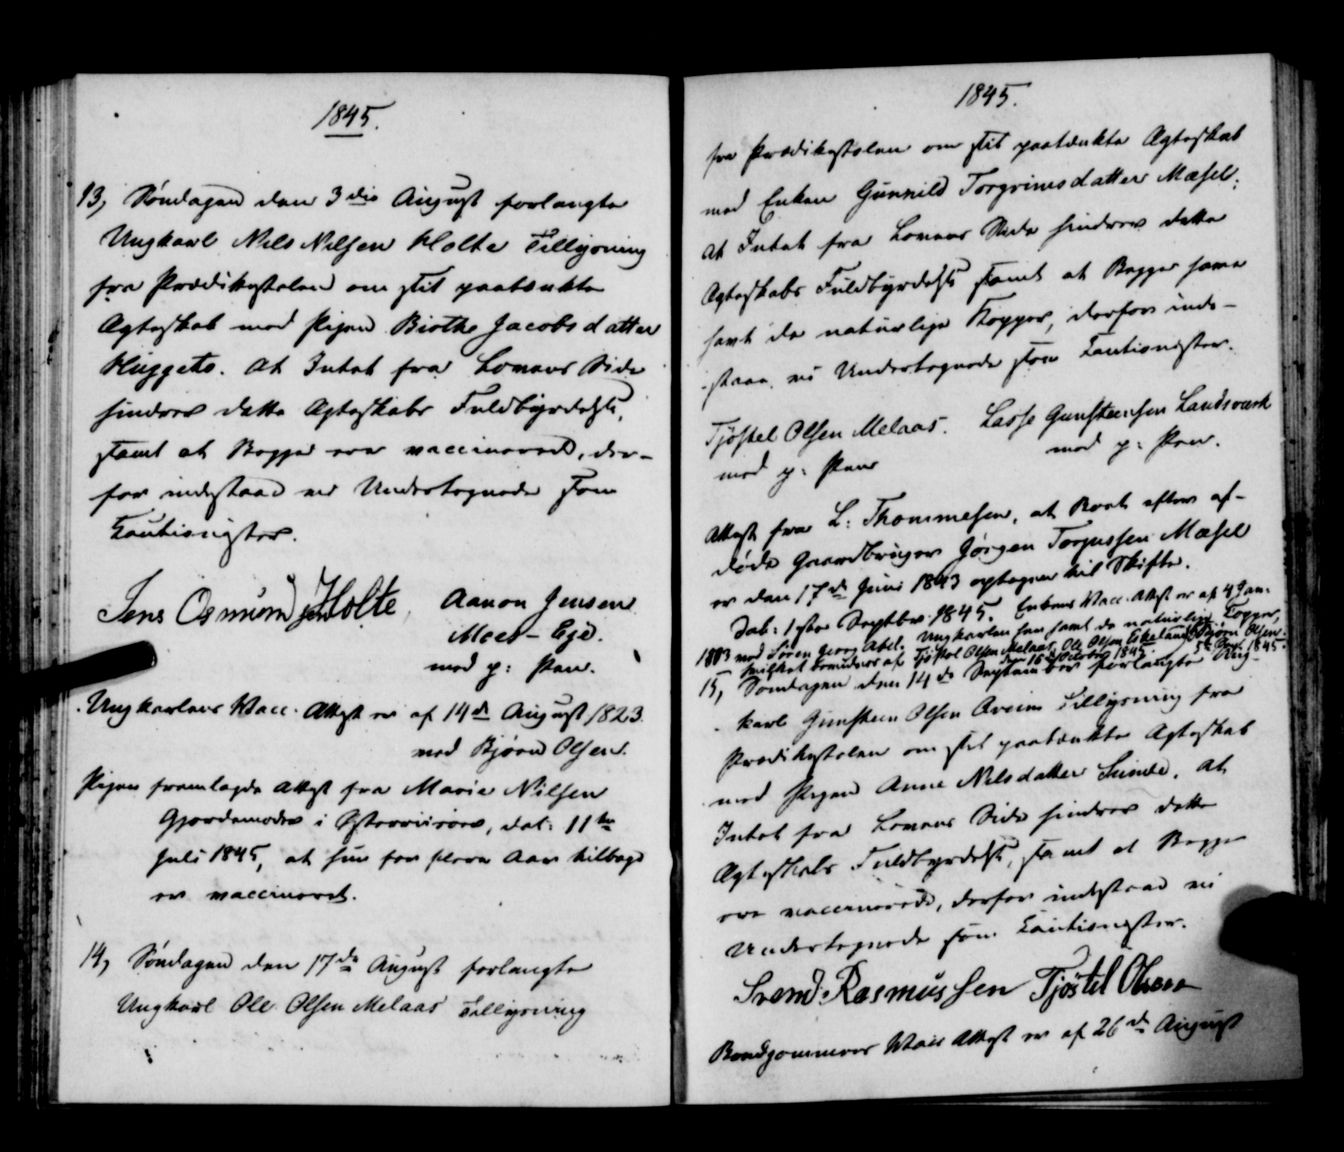 1845.
13, Søndagen den 3die August forlangte
Ungkarl Nils Nilsen Holte Tillysning
fra Prædikestolen om sit paatænkte
Ægteskab med Pigen Birthe Jacobsdatter
At Intet fra Lovens Side
hindrer dette Ægteskabs Fuldbyrdelse,
samt at Begge ere vaccinerede, der-
for indestaae vi Undertegnede som
Cautionister.
Jens Osmundsen Holte Aanon Jensen
Mees-Eje.
med p: Pen.
Ungkarlens Vacc. Attest er af 14de August 1823
med Bjørn Olsen.
Pigen fremlagde Attest fra Marie Nilsen
Gjordemoder i Østerriisøer, dat: 11te
Juli 1845, at hun for flere Aar tilbage
er vaccineret.
14, Søndagen den 17de August forlangte
Ungkarl Ole Olsen Melaas Tillysning
1845.
fra Prædikestolen om sit paatænkte Ægteskab
med Enken Gunnild Torgrimsdatter Mæsel;
At Intet fra Lovens Side hindrer dette
Ægteskabs Fuldbyrdelse samt at Begge have
havt de naturlige Kopper, derfor inde-
staae vi Undertegnede som Cautionister.
Tjøstel Olsen Melaas. Lasse Gunsteensen Landsværk
med p: Pen med p: Pen.
Attest fra L: Thommesen, at Boet efter af-
døde Gaardbruger Jørgen Torjussen Mæsel
er den 17de Juni 1843 optaget til Skifte.
Dat: 1ste Septbr. 1845. Enkens Vacc. Attest er af 4 Jan.
1803 med Søren Georg Abel. Ungkarlen har havt de naturlige Kopper,
hvilket bevidnes af Tjøstel Olsen Melaas, Ole Olsen Bjørn Olsen.
den 16de October 1845 1845.
15, Søndagen den 14de September forlangte Ung-
karl Gunsteen Olsen Tillysning fra
Prædikestolen om sit paatænkte Ægteskab
med Pigen Anne Nilsdatter At
Intet fra Lovens Side hindrer dette
Ægteskabs Fuldbyrdelse, samt at Begge
ere vaccinerede, derfor indestaae vi
Undertegnede som Cautionister.
Svend Rasmussen Tjøstel Olsen
Brudgommens Vacc Attest er af 26de August